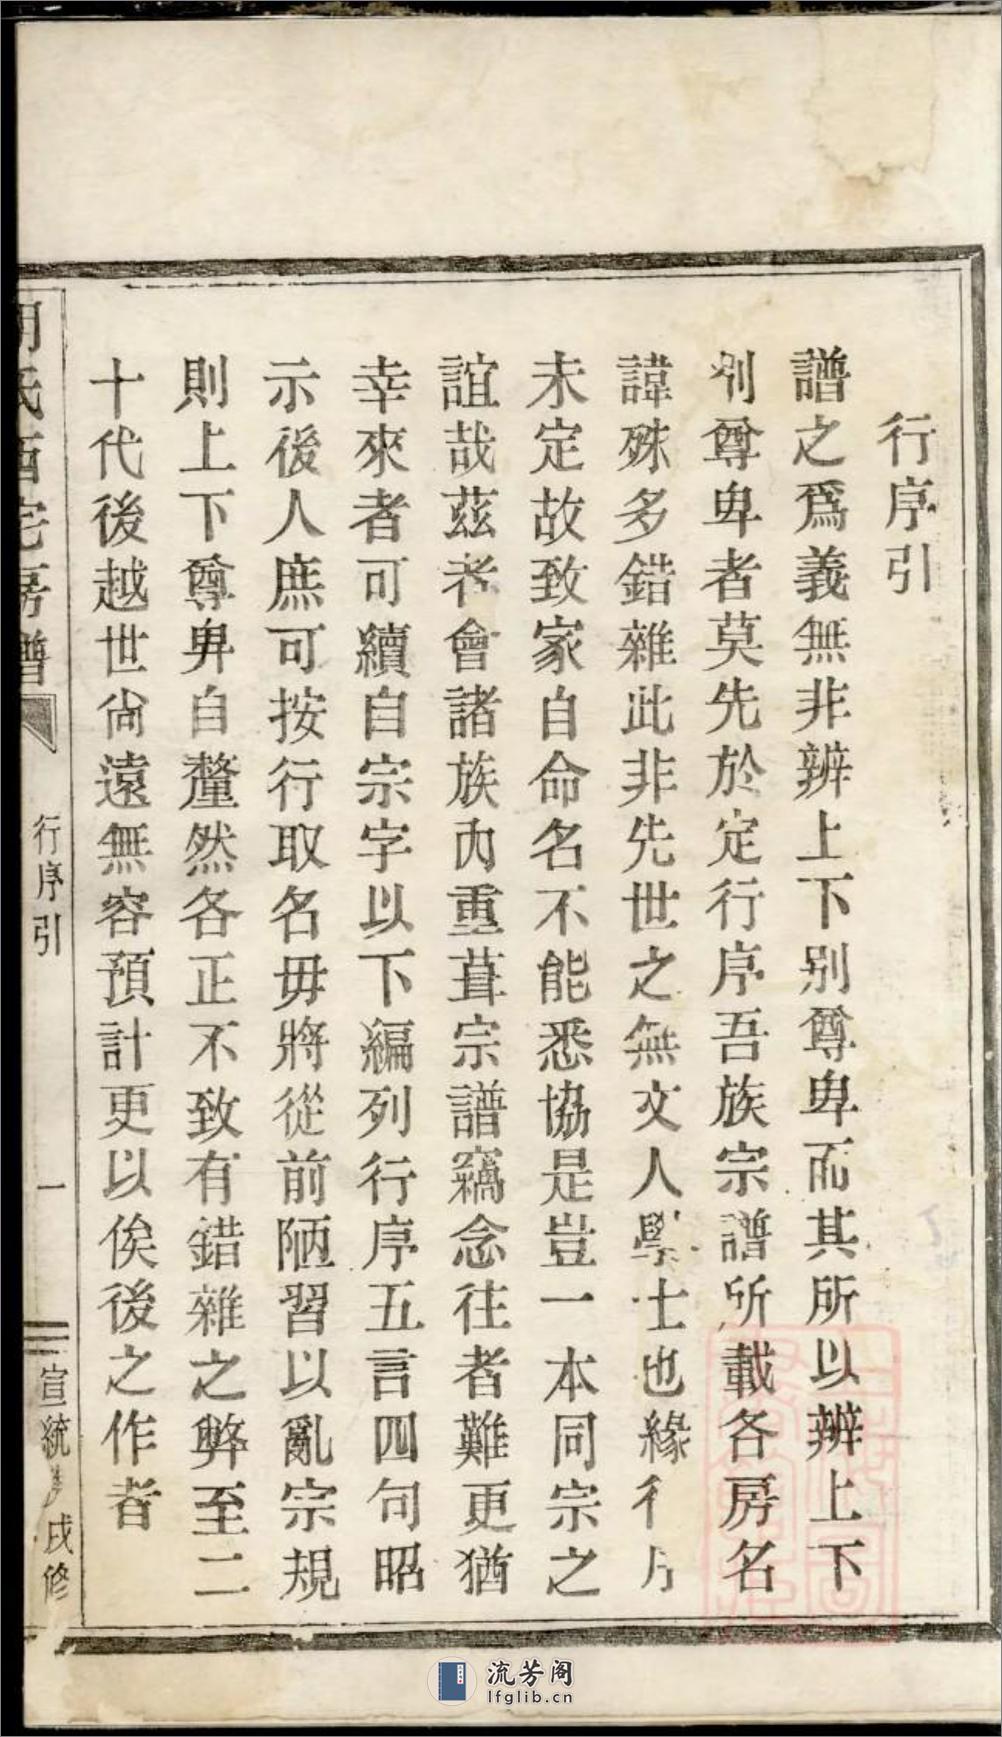 行序引
譜之爲義無非辨上下别尊卑而其所以辨上下
别尊卑者莫先於定行序吾族宗譜所載各房名
諱殊多錯雜此非先世之無文人學士也緣行序
未定故致家自命名不能悉協是豈一本同宗之
誼哉茲者會諸族內重葺宗譜竊念往者難更猶
幸來者可續自宗字以下編列行序五言四句昭
示後人庶可按行取名毋將從前陋習以亂宗規
則上下尊卑自釐然各正不致有錯雜之弊至二
十代後越世尙遠無容預計更以俟後之作者
氏西宅房譜
行序引
一
宣統 戌修
流芳阁
lfglib.cn